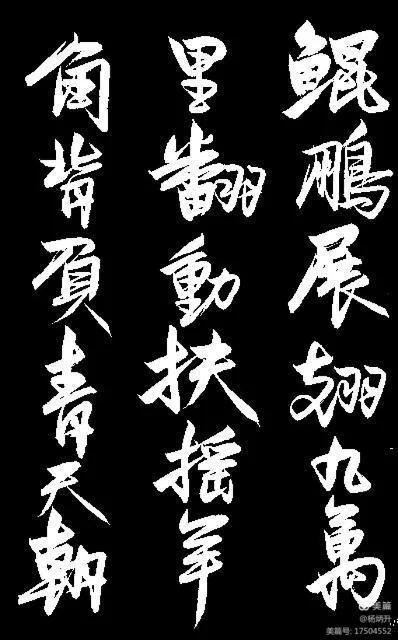 鲲鵬展翅九萬
里翻動扶摇羊
角背負青天朝
美篇
@杨炳升
美篇号: 17504552